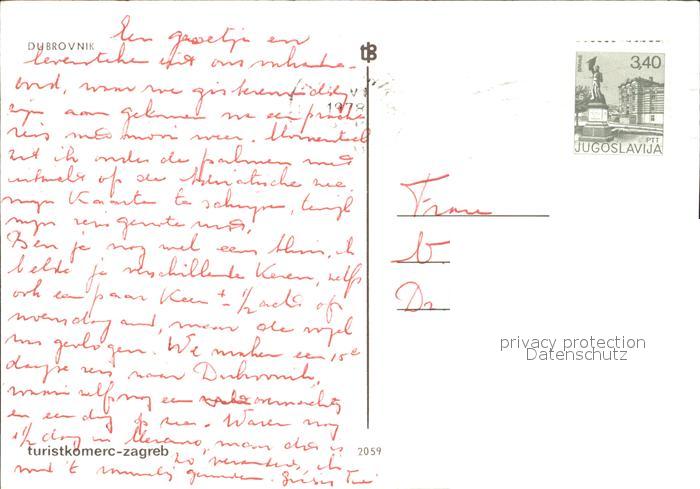 DUBROVNIK
Een groetje en
levensteken uit ons
waar we gisterenmiddag
zijn aan gekomen na een prachtige
reis met mooi weer. Momenteel
zit ik onder de palmen met
uitzicht op de Adriatische zee
mijn kaarten te schrijven, terwijl
mijn reisgenote rust.
Ben je nog wel eens thuis, ik
belde je verschillende keren, zelfs
ook een paar keer ± 1/2 acht of
woensdagavond, maar de vogel
was gevlogen. We maken een 15
daagse reis naar Dubrovnik,
waarin zelfs nog een
en een dag op zee. Waren nog
1 1/2 dag in Merano, maar dat is
zo veranderd, ik
vind 't
turistkomerc-zagreb
2059
tB
VI
1978
3,40
PTT
JUGOSLAVIJA
Frau
D
privacy protection
Datenschutz